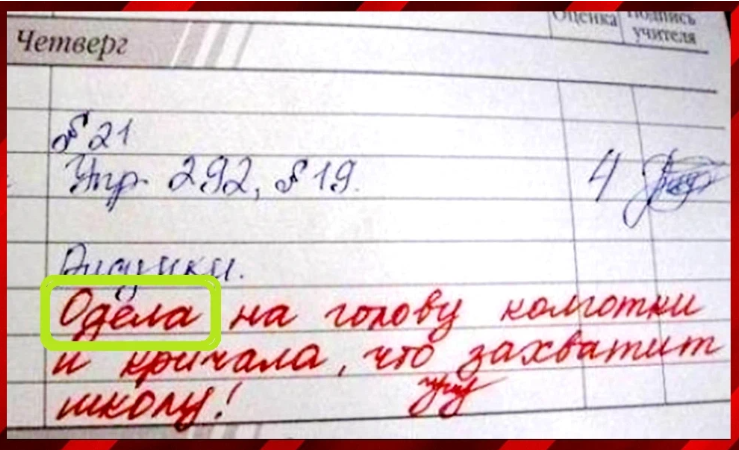 Оценка Подпись
учителя
Четверг
§ 21
Упр. 292, § 19. 4
Рисунки.
Одела на голову колготки
и кричала, что захватит
школу!